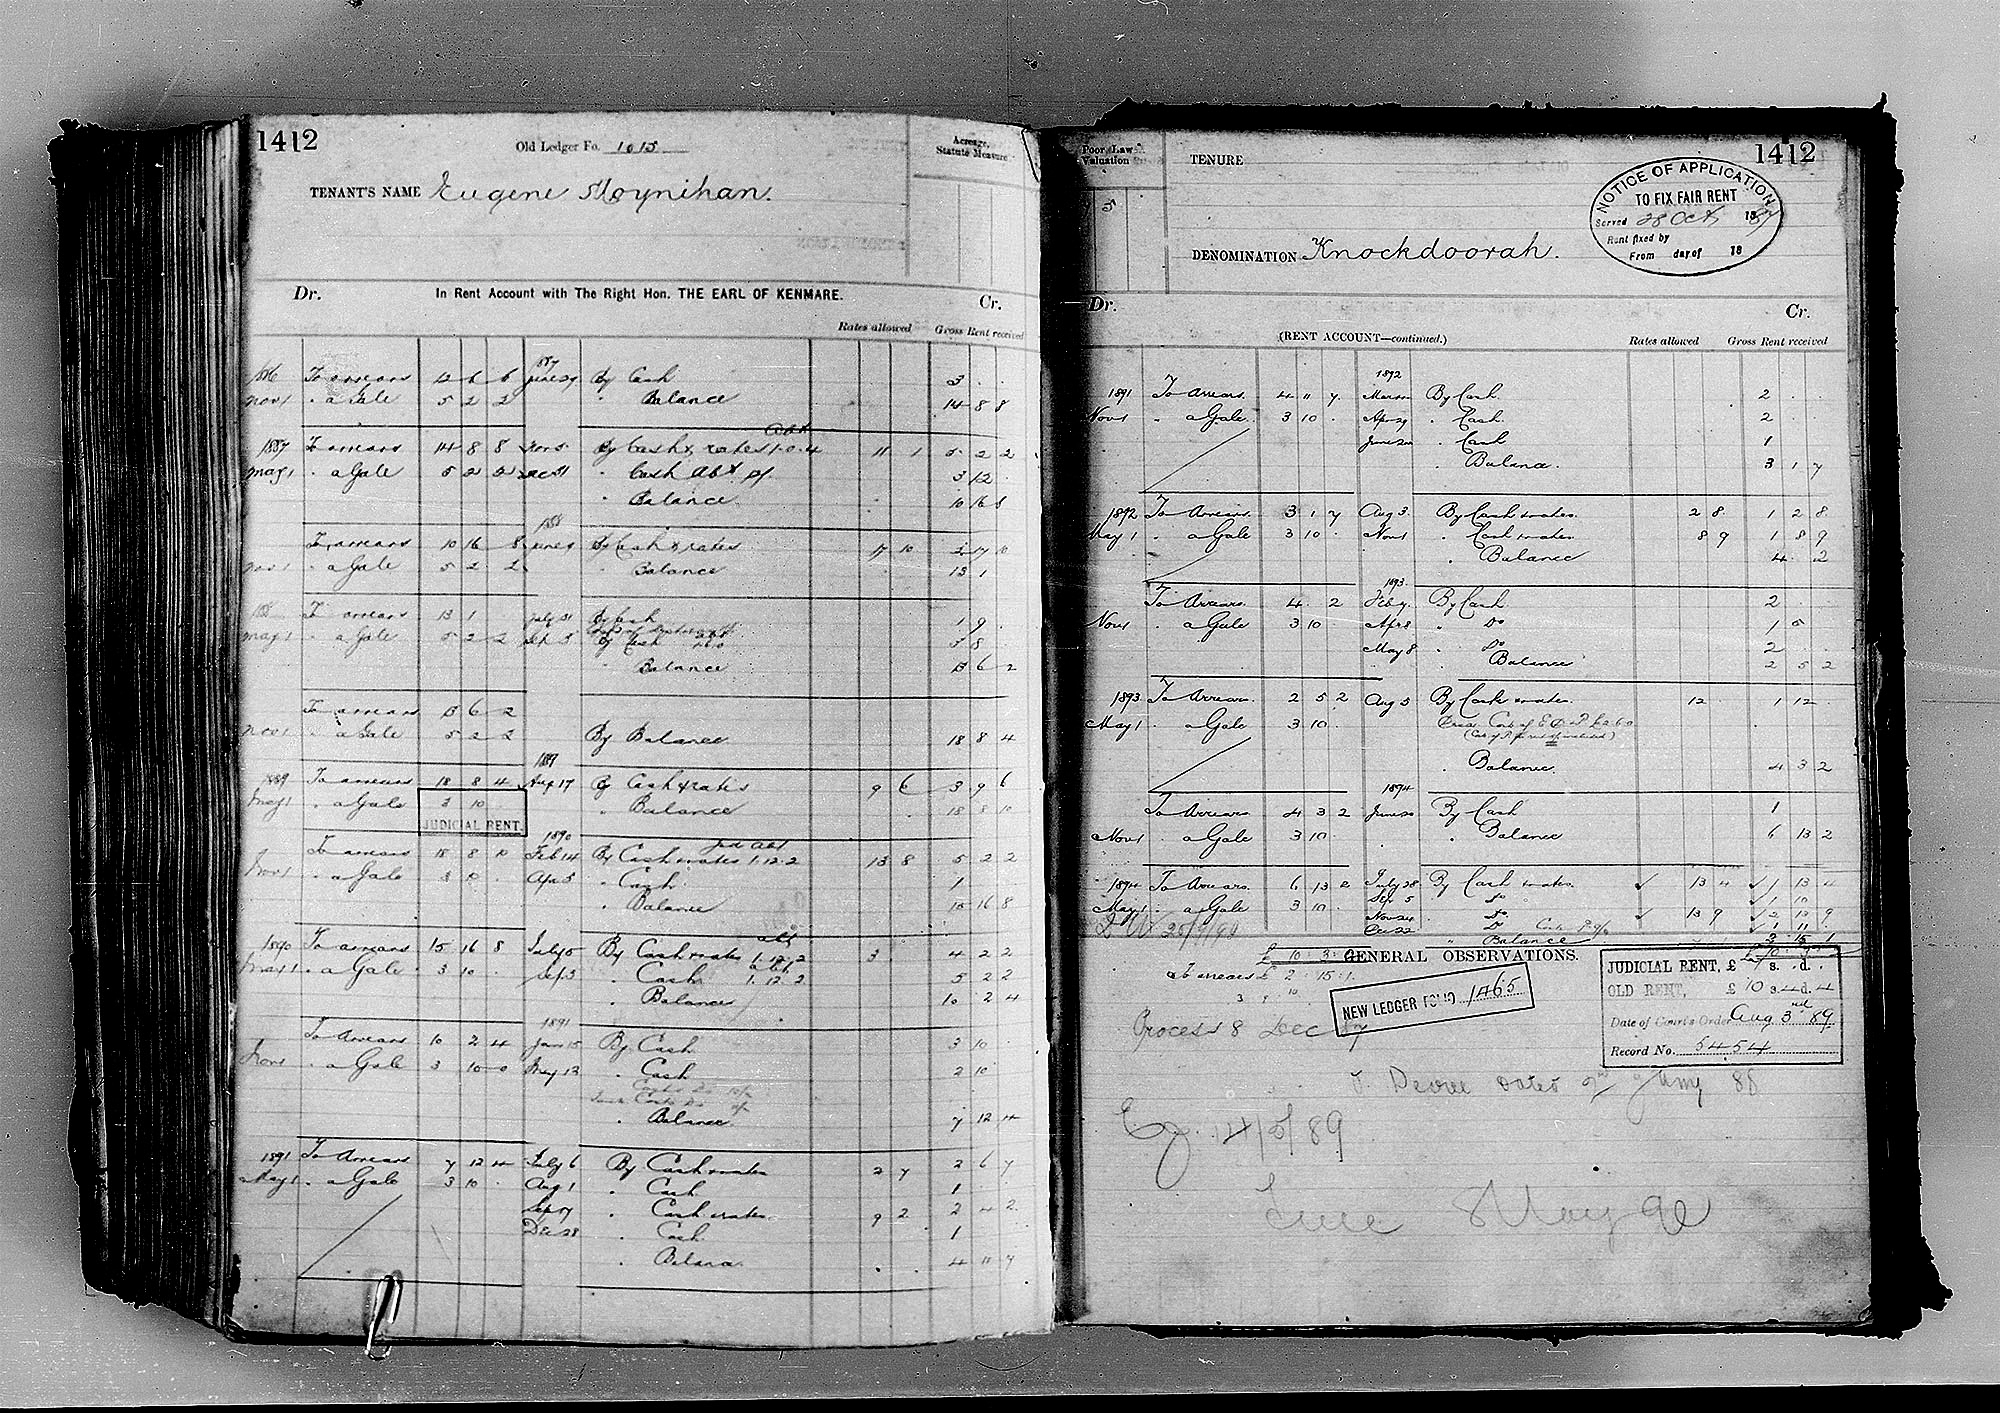 1412
Old Ledger Fo. 1015
Acreage, Statute Measure
TENANT'S NAME Eugene Moynihan.
Dr. In Rent Account with The Right Hon. THE EARL OF KENMARE. Cr.
Rates allowed Gross Rent received
1887
1886 To arrears 12 6 6 June 29 By Cash 3 . .
Nov 1 " a Gale 5 2 2 " Balance 14 8 8
1887 To arrears 14 8 8 Nov 5 By Cash & rates 1.0.4 11 1 5 2 2
May 1 " a Gale 5 2 2 Dec 31 " Cash Abt 3 12
" Balance 10 16 8
1888
To arrears 10 16 8 June 9 By Cash & rates 17 10 2 17 10
Nov 1 " a Gale 5 2 2 " Balance 13 1
To arrears 13 1 July 31 By Cash 1 9
May 1 " a Gale 5 2 2 Sep 5 By Cash 3 8
" Balance 13 6 2
To arrears 13 6 2
Nov 1 " a Gale 5 2 2 By Balance 18 8 4
1889
1889 To arrears 18 8 4 Aug 17 By Cash & rates 9 6 3 9 6
May 1 " a Gale 3 10 " Balance 18 8 10
JUDICIAL RENT.
1890
To arrears 18 8 10 Feb 14 By Cash & rates 1.12.2 13 8 5 2 2
Nov 1 " a Gale 3 10 Apr 5 " Cash 1
" Balance 15 16 8
abt
1890 To arrears 15 16 8 July 5 By Cash & rates 1.12.2 3 4 2 2
May 1 " a Gale 3 10 Sep 3 " Cash 1.12.2 5 2 2
" Balance 10 2 4
1891
To Arrears 10 2 4 Jan 15 By Cash 3 10
Nov 1 " a Gale 3 10 0 May 12 " Cash 2 10
" Balance 7 12 4
1891 To Arrears 7 12 4 July 6 By Cash & rates 2 7 2 6 7
May 1 " a Gale 3 10 Aug 1 " Cash 1
Sep 17 " Cash & rates 9 2 2 4 2
Dec 28 " Cash 1
" Balance 4 11 7
Poor Law Valuation
TENURE
1412
NOTICE OF APPLICATION
TO FIX FAIR RENT
Served 28 Oct 1887
Rent fixed by
From day of 18
DENOMINATION Knockdoorah.
Dr. Cr.
(RENT ACCOUNT—continued.) Rates allowed Gross Rent received
1892
1891 To Arrears 4 11 7 By Cash 2
Nov 1 " a Gale 3 10 Apr 29 " Cash 2
June 20 " Cash 1
" Balance 3 1 7
1892 To Arrears 3 1 7 Aug 3 By Cash & rates 2 8 1 2 8
May 1 " a Gale 3 10 Nov 1 " Cash & rates 8 9 1 8 9
" Balance 4 . 2
1893
To Arrears 4 . 2 Feb 7 By Cash 2
Nov 1 " a Gale 3 10 Apr 8 " Do 1 5
May 8 " Do 2
" Balance 2 5 2
1893 To Arrears 2 5 2 Aug 5 By Cash & rates 12 1 12
May 1 " a Gale 3 10
" Balance 4 3 2
1894
To Arrears 4 3 2 June 20 By Cash 1
Nov 1 " a Gale 3 10 " Balance 6 13 2
1894 To Arrears 6 13 2 July 28 By Cash & rates 13 4 1 13 4
May 1 " a Gale 3 10 Sep 5 " Do 1 10
Nov 24 " Do 13 9 2 13 9
Dec 22 " Do 1 11
" Balance 2 15 1
£ 10 3 2
GENERAL OBSERVATIONS.
To arrears £ 2 15 1
NEW LEDGER FOLIO 1465
JUDICIAL RENT, £ 7 s. . d. .
OLD RENT, £ 10 s. 4 d. 4
Date of Court's Order Aug 3rd 89
Record No. 5454
Process 8 Dec 87
Decree dated
14/5/89
May 90